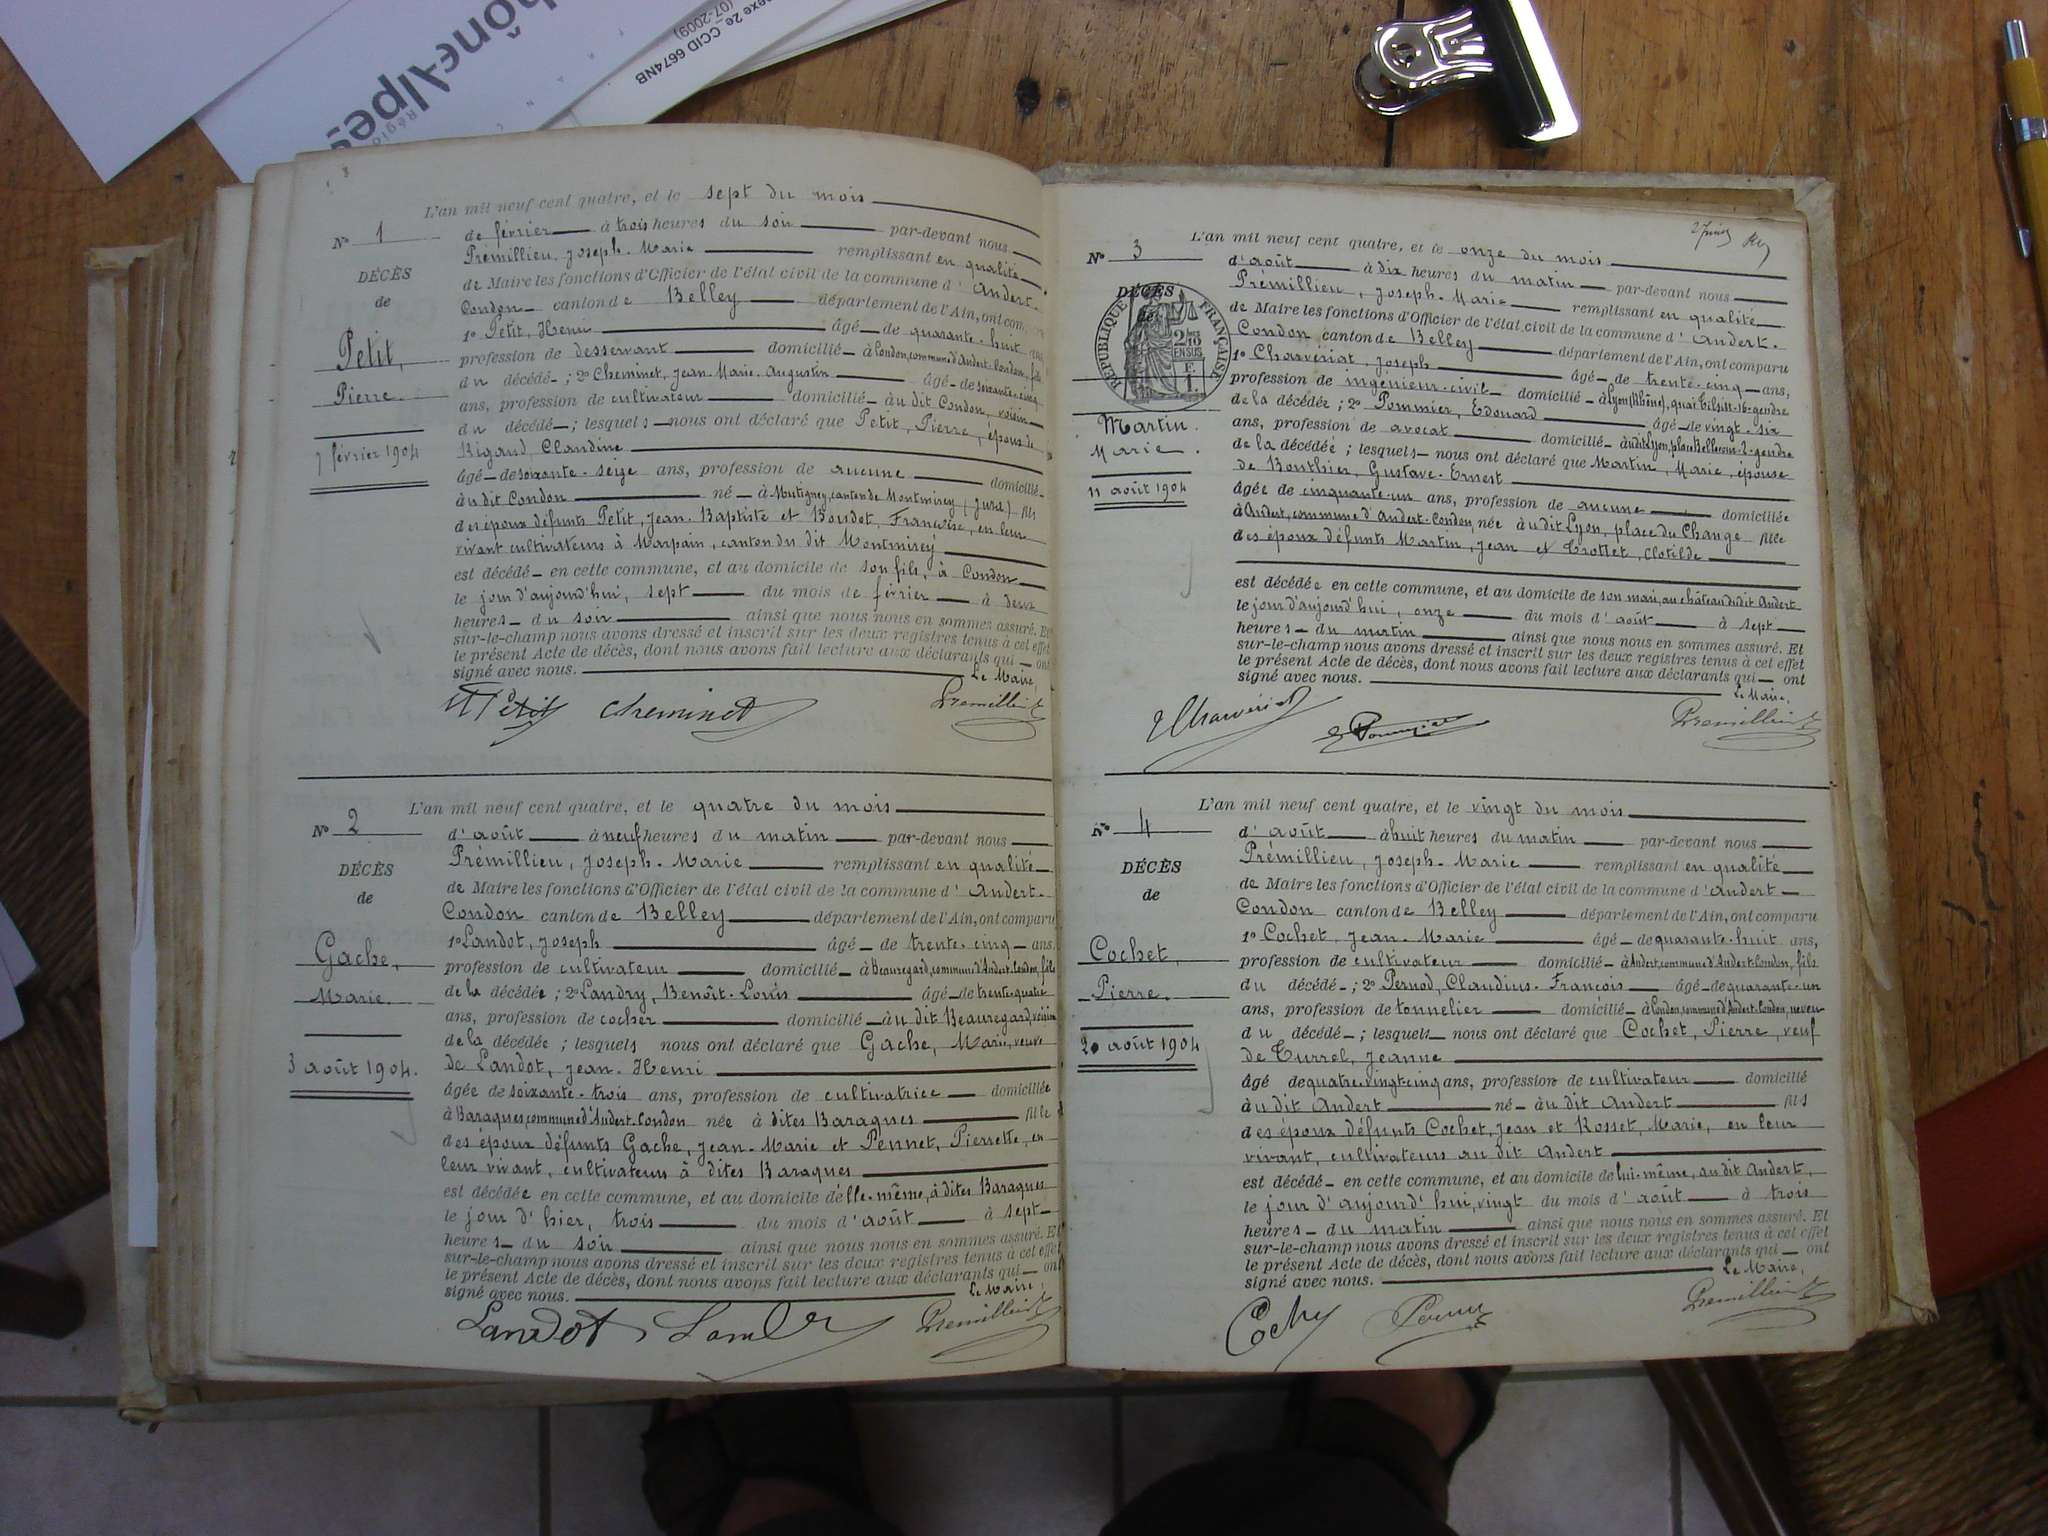 hône-Alpes
Régio
exe 2e
(07-2009)
CCID 6674NB
L'an mil neuf cent quatre, et le sept du mois
N° 1
de février à trois heures du soir par-devant nous
Prémillieu, Joseph-Marie remplissant en qualité
DÉCÈS
de
de Maire les fonctions d'Officier de l'état civil de la commune d'Andert-
Condon canton de Belley département de l'Ain, ont com
1° Petit, Henri âgé de quarante-huit ans
Petit,
Pierre.
7 février 1904
profession de desservant domicilié à Condon, commune d'Andert-Condon, fils
du décédé ; 2° Cheminet, Jean-Marie-Augustin âgé de soixante-cinq
ans, profession de cultivateur domicilié à u dit Condon, voisin
du décédé ; lesquels nous ont déclaré que Petit, Pierre, époux de
Rigaud, Claudine
âgé de soixante-seize ans, profession de aucune domicilié
à u dit Condon né à Mutigney, canton de Montmirey (Jura) fils
des époux défunts Petit, Jean-Baptiste et Boudot, Françoise, en leur
vivant cultivateurs à Marpain, canton du dit Montmirey
est décédé en cette commune, et au domicile de son fils, à Condon
le jour d'aujourd'hui, sept du mois de février à deux
heures du soir ainsi que nous nous en sommes assuré. Et
sur-le-champ nous avons dressé et inscrit sur les deux registres tenus à cet effet
le présent Acte de décès, dont nous avons fait lecture aux déclarants qui ont
signé avec nous. Le Maire,
H Petit Cheminet Premillieu
L'an mil neuf cent quatre, et le quatre du mois
N° 2
d'août à neuf heures du matin par-devant nous
Prémillieu, Joseph-Marie remplissant en qualité
DÉCÈS
de
de Maire les fonctions d'Officier de l'état civil de la commune d'Andert-
Condon canton de Belley département de l'Ain, ont comparu
Gache,
Marie.
3 août 1904.
1° Landot, Joseph âgé de trente-cinq ans,
profession de cultivateur domicilié à Beauregard, commune d'Andert-Condon, fils
de la décédée ; 2° Landry, Benoît-Louis âgé de trente-quatre
ans, profession de cocher domicilié à u dit Beauregard, voisin
de la décédée ; lesquels nous ont déclaré que Gache, Marie, veuve
de Landot, Jean-Henri
âgée de soixante-trois ans, profession de cultivatrice domiciliée
à Baraques, commune d'Andert-Condon née à dites Baraques fille
des époux défunts Gache, Jean-Marie et Pennet, Pierrette, en
leur vivant, cultivateurs à dites Baraques
est décédée en cette commune, et au domicile d'elle-même, à dites Baraques
le jour d'hier, trois du mois d'août à sept
heures du soir ainsi que nous nous en sommes assuré. Et
sur-le-champ nous avons dressé et inscrit sur les deux registres tenus à cet effet
le présent Acte de décès, dont nous avons fait lecture aux déclarants qui ont
signé avec nous. Le Maire,
Landot Premillieu
L'an mil neuf cent quatre, et le onze du mois
N° 3
d'août à dix heures du matin par-devant nous
Prémillieu, Joseph-Marie remplissant en qualité
DÉCÈS
de
RÉPUBLIQUE FRANÇAISE
2/10 EN SUS
F. 1.
de Maire les fonctions d'Officier de l'état civil de la commune d'Andert-
Condon canton de Belley département de l'Ain, ont comparu
1° Charvériat, Joseph âgé de trente-cinq ans,
profession de ingénieur-civil domicilié à Lyon (Rhône), quai Tilsitt-16-gendre
de la décédée ; 2° Pommier, Edouard âgé de vingt-six
Martin.
Marie.
11 août 1904
ans, profession de avocat domicilié à u dit Lyon, place Bellecour-2-gendre
de la décédée ; lesquels nous ont déclaré que Martin, Marie, épouse
de Bonthier, Gustave-Ernest
âgée de cinquante-un ans, profession de aucune domiciliée
à Andert, commune d'Andert-Condon, née à u dit Lyon, place du Change fille
des époux défunts Martin, Jean et Trollet, Clotilde
est décédée en cette commune, et au domicile de son mari, au château du dit Andert
le jour d'aujourd'hui, onze du mois d'août à sept
heures du matin ainsi que nous nous en sommes assuré. Et
sur-le-champ nous avons dressé et inscrit sur les deux registres tenus à cet effet
le présent Acte de décès, dont nous avons fait lecture aux déclarants qui ont
signé avec nous. Le Maire,
J Charvériat E Pommier Premillieu
L'an mil neuf cent quatre, et le vingt du mois
N° 4
d'août à huit heures du matin par-devant nous
Prémillieu, Joseph-Marie remplissant en qualité
DÉCÈS
de
de Maire les fonctions d'Officier de l'état civil de la commune d'Andert-
Condon canton de Belley département de l'Ain, ont comparu
Cochet,
Pierre.
20 août 1904
1° Cochet, Jean-Marie âgé de quarante-huit ans,
profession de cultivateur domicilié à Andert, commune d'Andert-Condon, fils
du décédé ; 2° Pernod, Claudius-François âgé de quarante-un
ans, profession de tonnelier domicilié à Condon, commune d'Andert-Condon, neveu
du décédé ; lesquels nous ont déclaré que Cochet, Pierre, veuf
de Turrel, Jeanne
âgé de quatre-vingt-cinq ans, profession de cultivateur domicilié
à u dit Andert né à u dit Andert fils
des époux défunts Cochet, Jean et Rosset, Marie, en leur
vivant, cultivateurs au dit Andert
est décédé en cette commune, et au domicile de lui-même, au dit Andert,
le jour d'aujourd'hui, vingt du mois d'août à trois
heures du matin ainsi que nous nous en sommes assuré. Et
sur-le-champ nous avons dressé et inscrit sur les deux registres tenus à cet effet
le présent Acte de décès, dont nous avons fait lecture aux déclarants qui ont
signé avec nous. Le Maire,
Premillieu